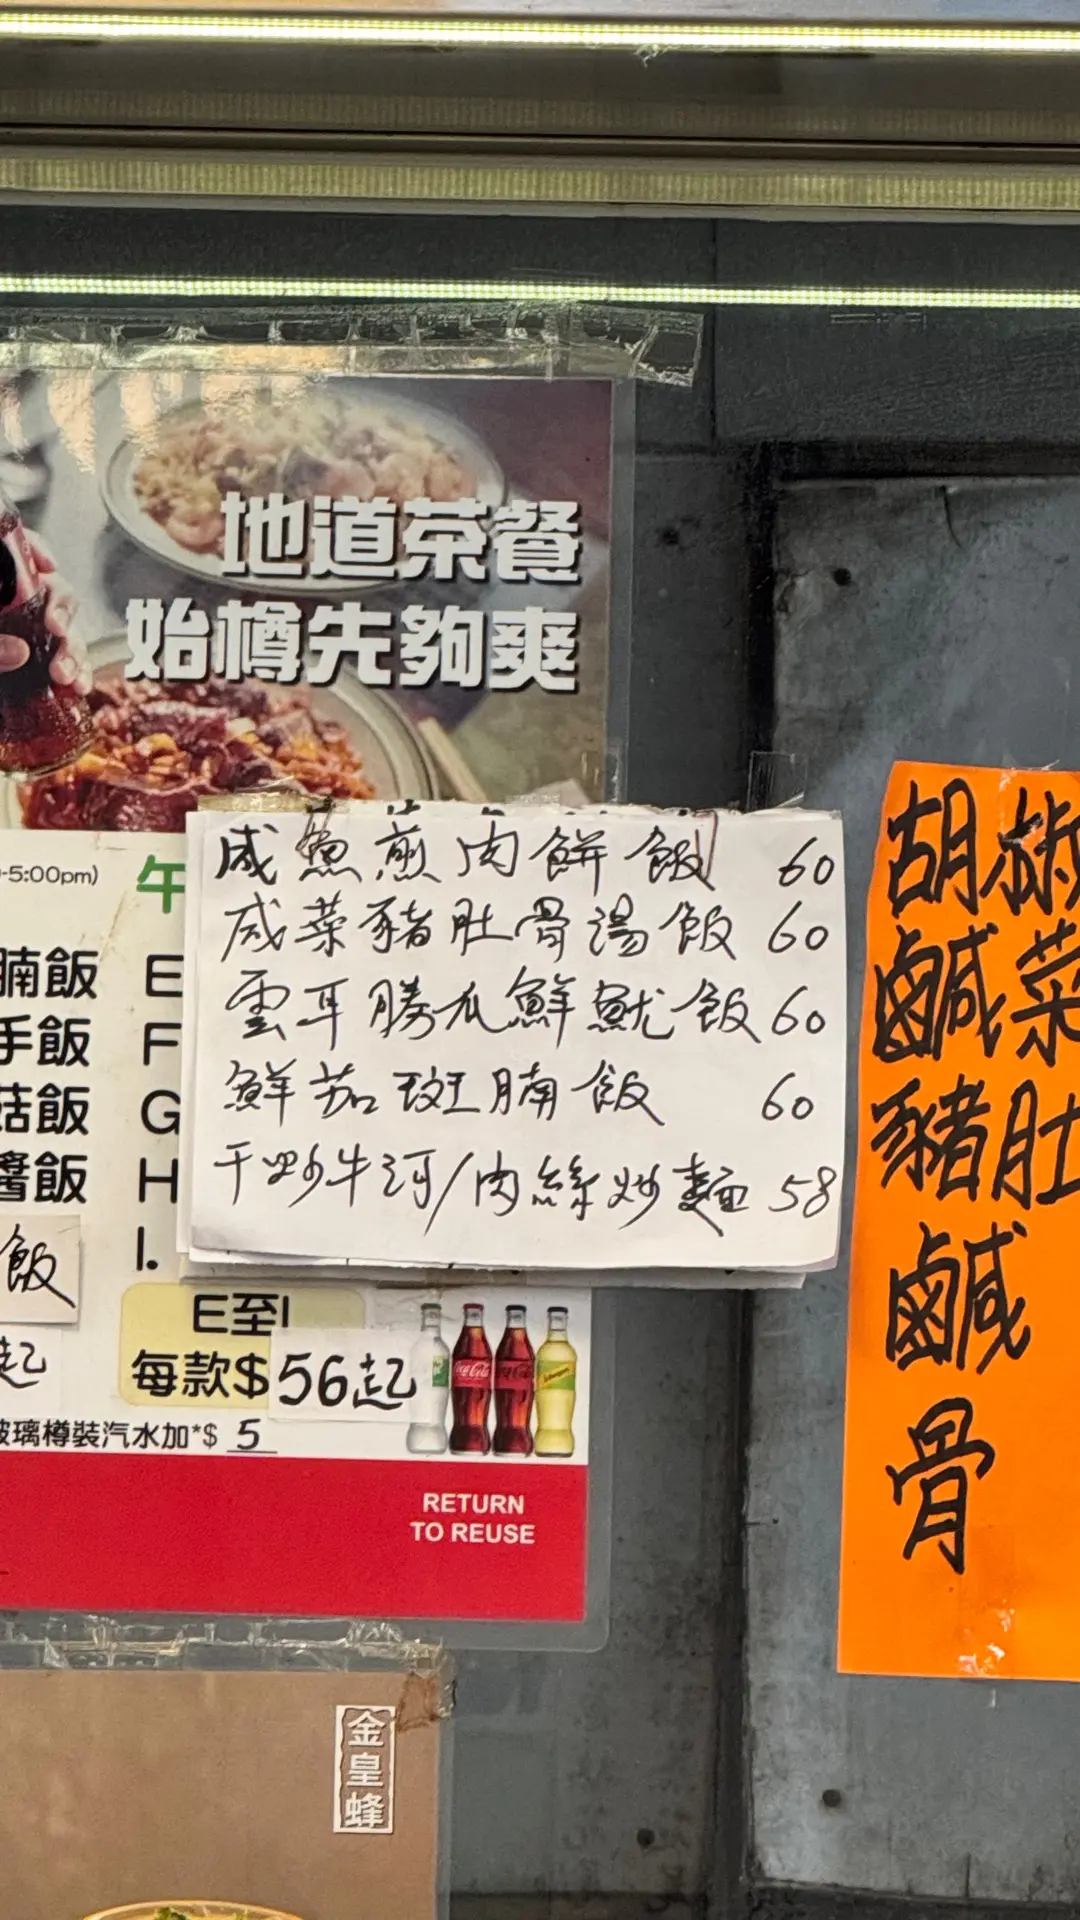 地道茶餐
始樽先夠爽
-5:00pm)
午
腩飯
E
手飯
F
菇飯
G
醬飯
H
I.
飯
起
E至I
每款$56起
玻璃樽裝汽水加*$ 5
RETURN
TO REUSE
咸魚煎肉餅飯 60
咸菜豬肚骨湯飯 60
雲耳勝瓜鮮魷飯 60
鮮茄斑腩飯 60
干炒牛河/肉絲炒麵 58
胡椒
鹹菜
豬肚
鹹
骨
金皇蜂